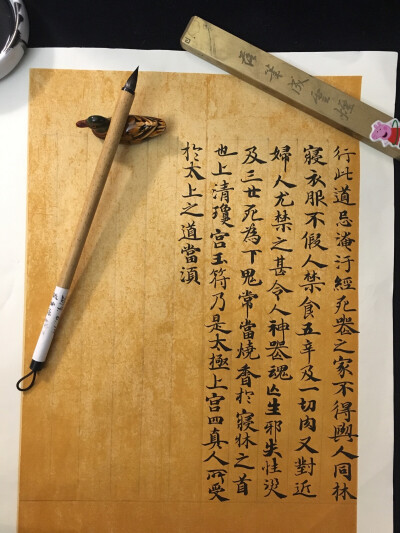 行此道忌淹汙經死喪之家不得與人同牀
寢衣服不假人禁食五辛及一切肉又對近
婦人尤禁之甚令人神喪魂亡生邪失性災
及三世死為下鬼常當燒香於寢牀之首
也上清瓊宮玉符乃是太極上宮四真人所受
於太上之道當須
落筆成雲煙